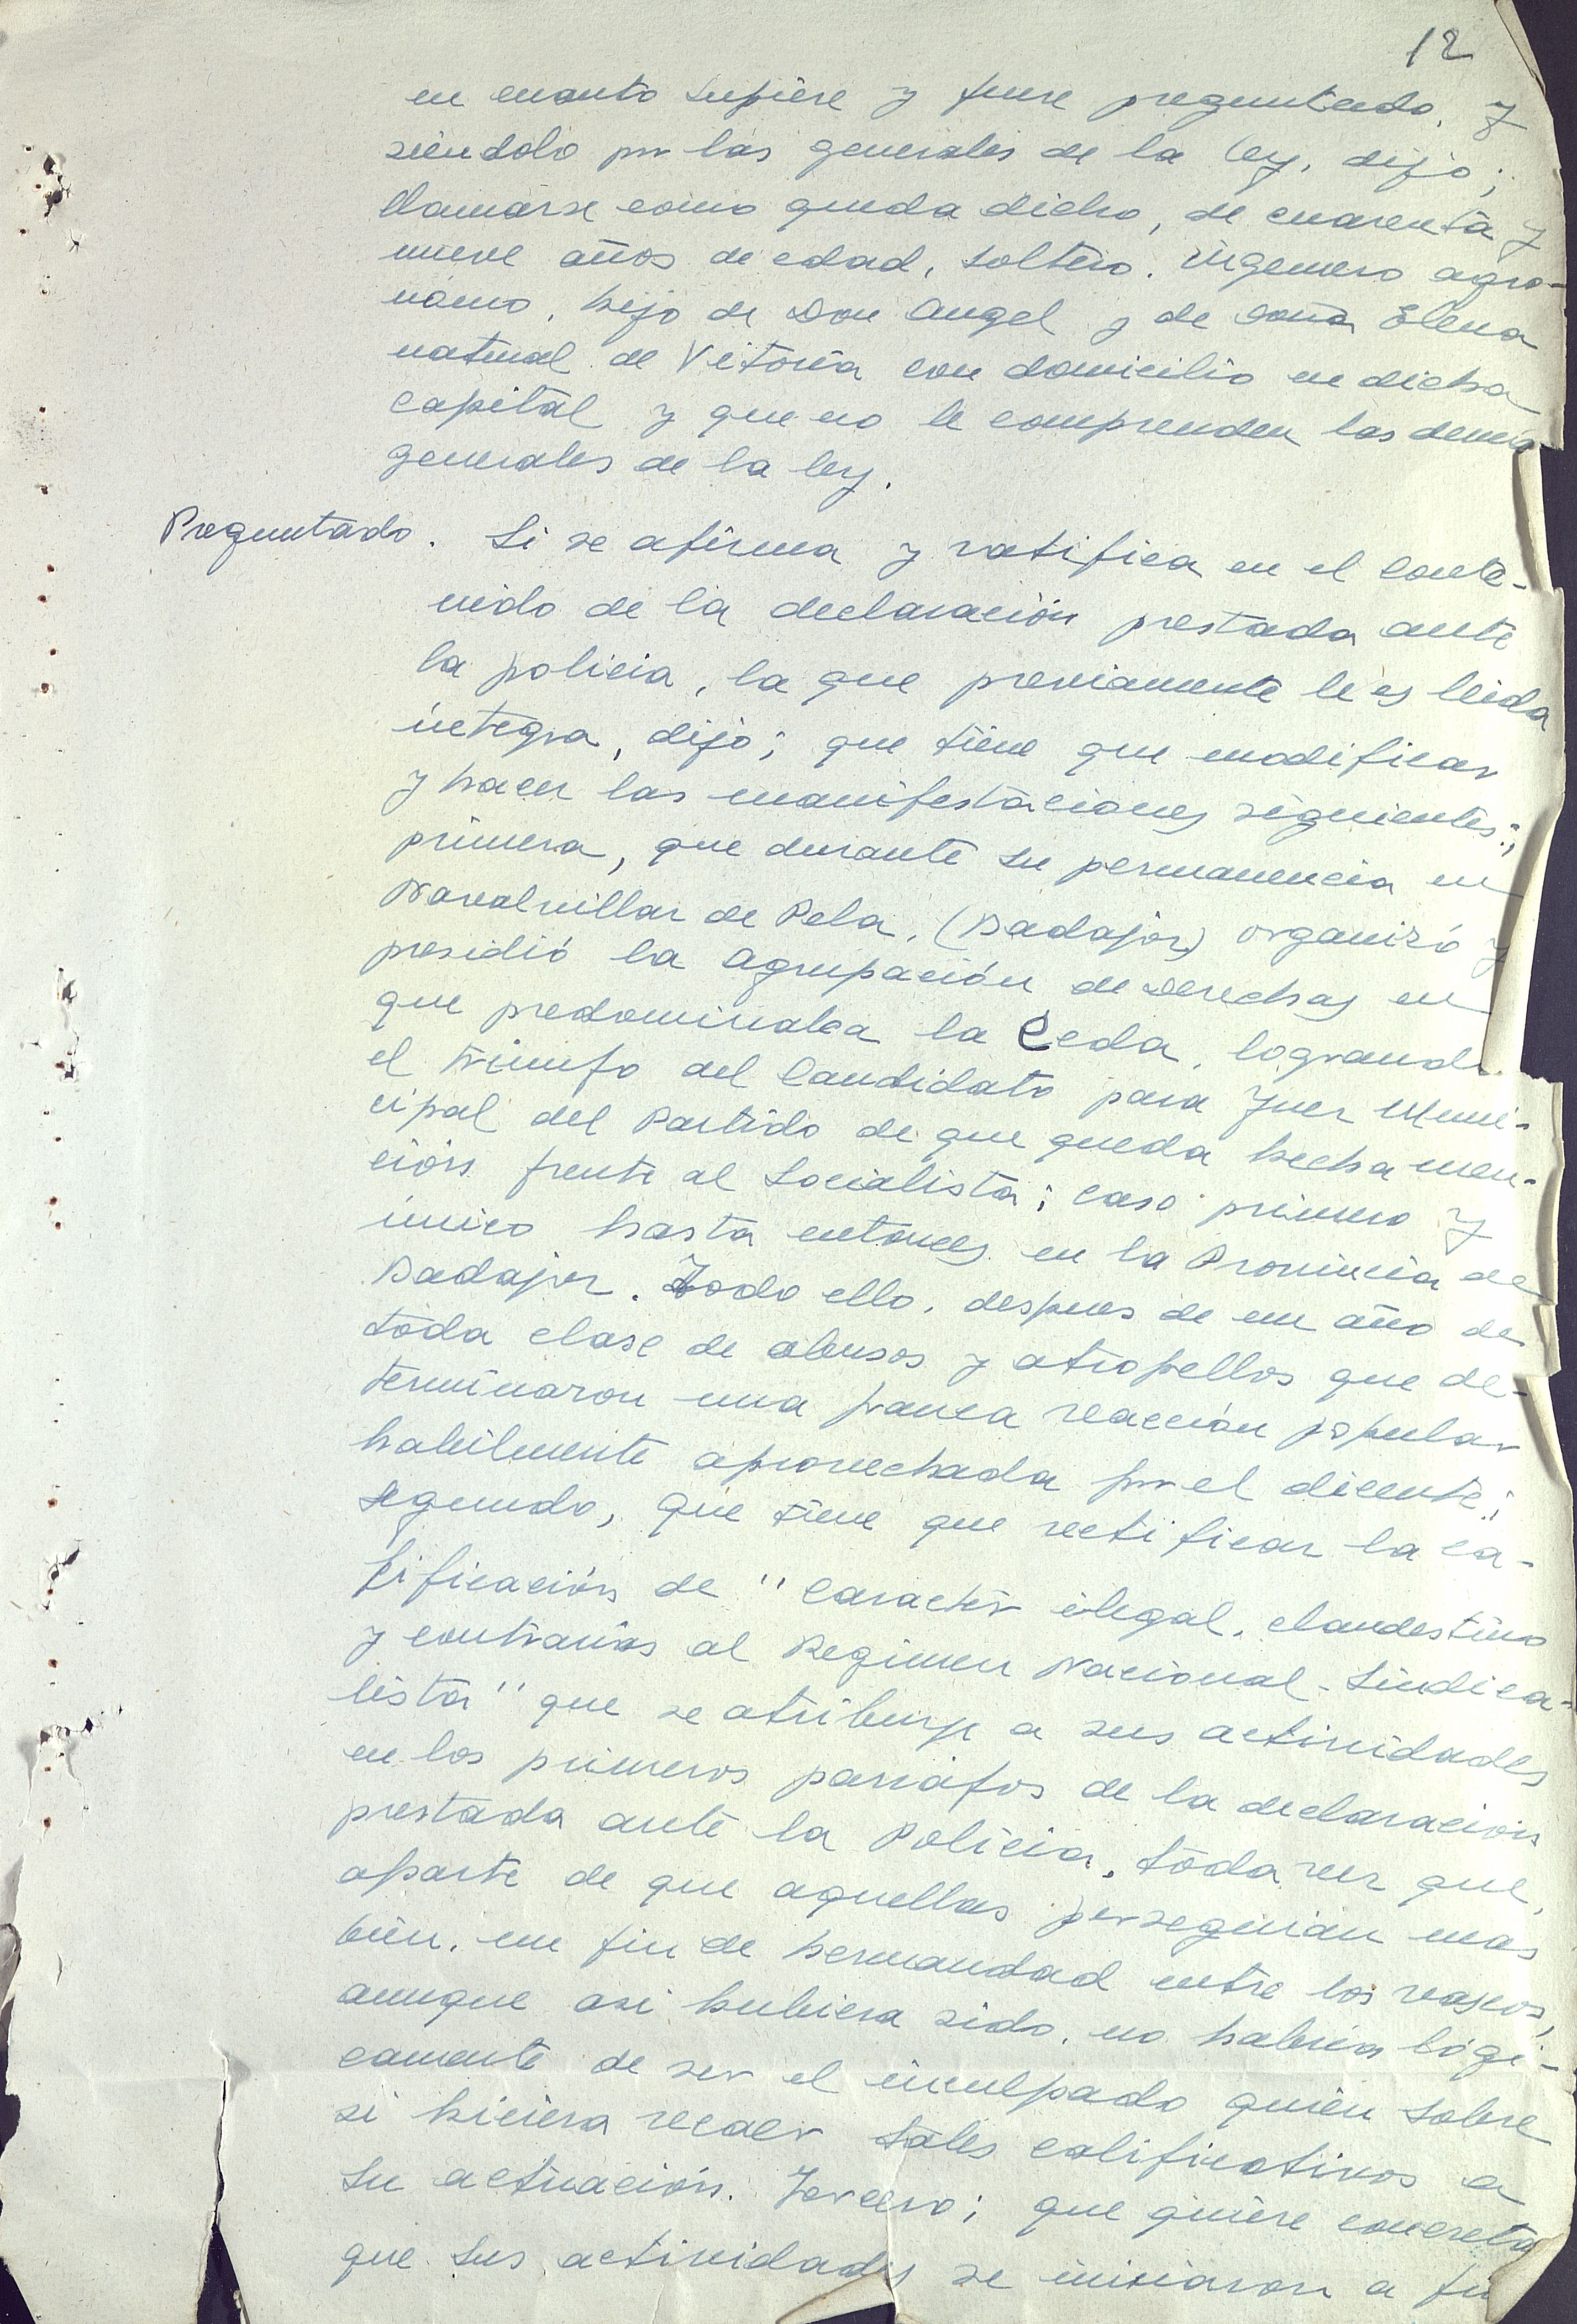 12
en cuanto supiere y fuere preguntado. y
siendolo por las generales de la ley, dijo;
llamarse como queda dicho, de cuarenta y
nueve años de edad, soltero. ingeniero agro-
nomo, hijo de Don Angel y de doña Elena
natural de Vitoria con domicilio en dicha
capital y que no le comprenden las demás
generales de la ley.
Preguntado. Si se afirma y ratifica en el conte-
nido de la declaración prestada ante
la policia, la que previamente le es leida
integra, dijo; que tiene que modificar
y hacer las manifestaciones siguientes:;
primera, que durante su permanencia en
Navalvillar de Pela. (Badajoz) organizó y
presidió la Agrupación de Derechas en
que predominaba la Ceda, logrando
el triunfo del Candidato para Juez Muni-
cipal del Partido de que queda hecha men-
ción frente al Socialista; caso primero y
unico hasta entonces en la Provincia de
Badajoz. Todo ello, despues de un año de
toda clase de abusos y atropellos que de-
terminaron una franca reacción popular
habilmente aprovechada por el dicente;
segundo, que tiene que rectificar la ca-
lificación de "caracter ilegal, clandestino
y contrarias al Regimen Nacional-Sindica-
lista" que se atribuye a sus actividades
en los primeros parrafos de la declaración
prestada ante la Policia, toda vez que,
aparte de que aquellas perseguian mas
bien, un fin de hermandad entre los vascos,
aunque asi hubiera sido, no habria lógi-
camente de ser el inculpado quien sobre
si hiciera recaer tales calificativos a
su actuación. Tercero; que quiere concretar
que sus actividades se iniciaron a fin